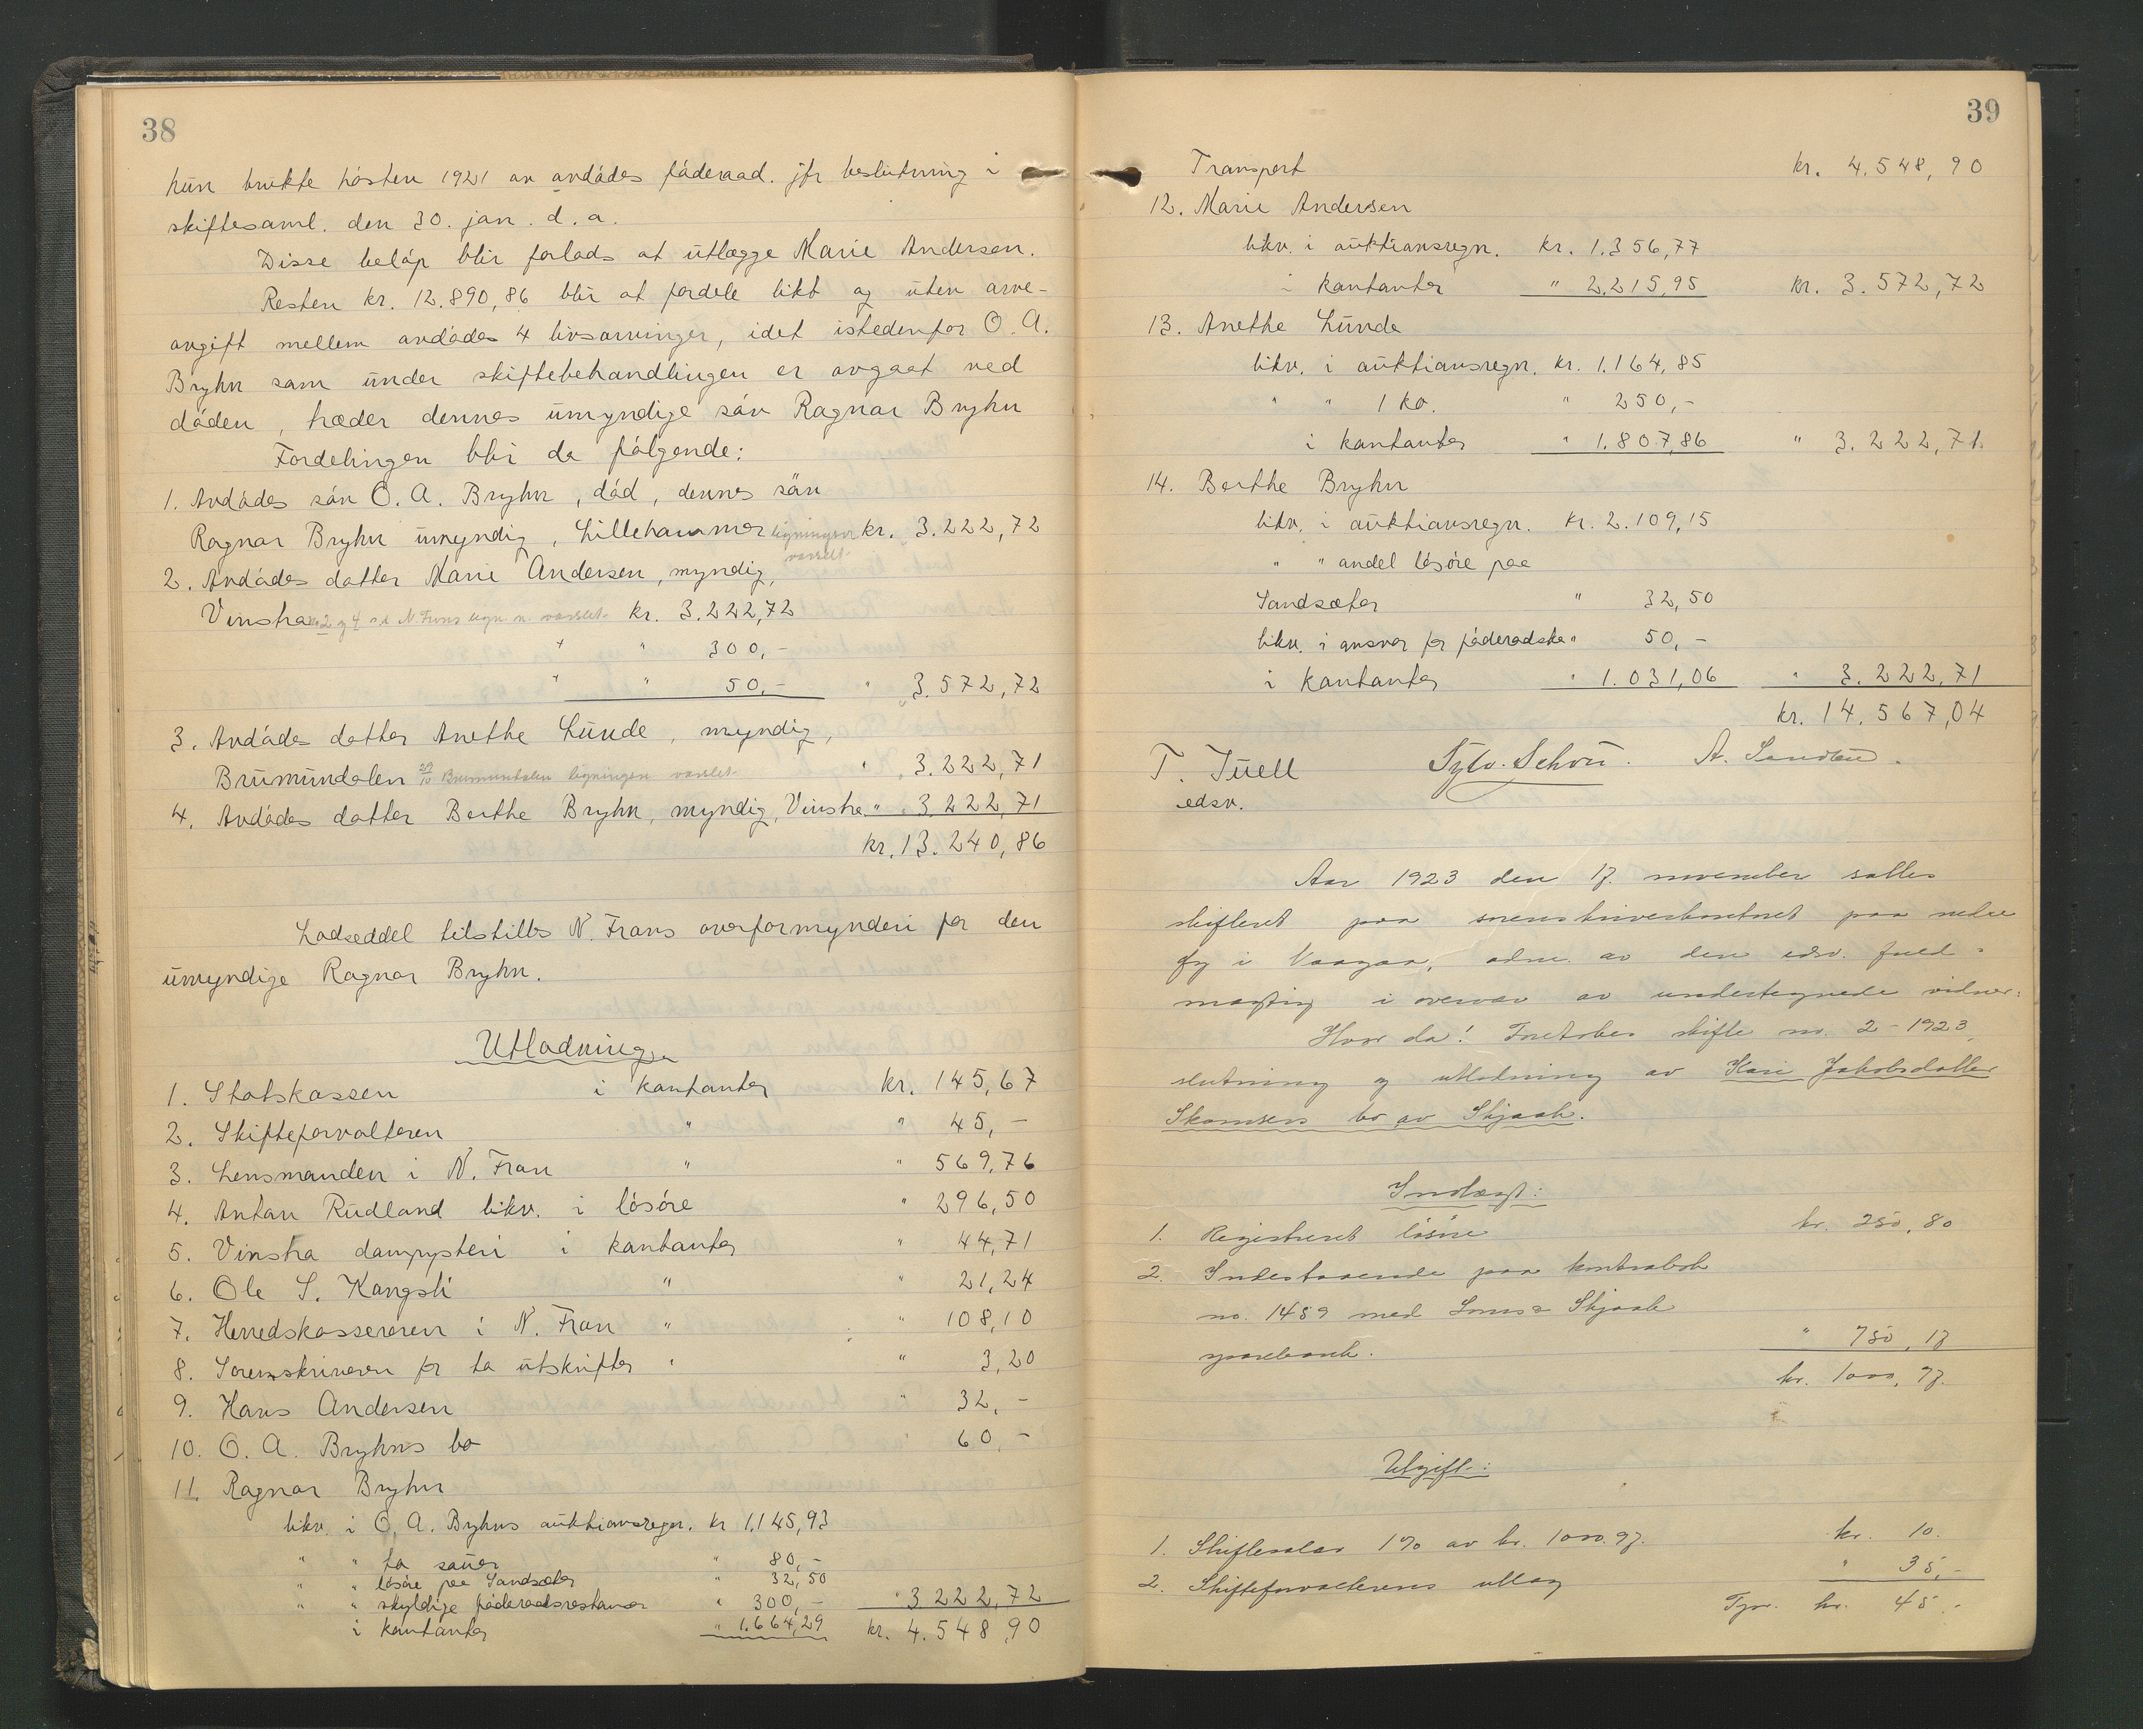 38
hun brukte hösten 1921 av avdödes föderaad. jfr beslutning i
skiftesaml. den 30. jan. d. a.
Disse beløp blir forlods at utlægge Marie Andersen.
Resten kr. 12.890,86 blir at fordele likt og uten arve-
avgift mellem avdödes 4 livsarvinger, idet istedenfor O. A.
Bryhn som under skiftebehandlingen er avgaat ved
döden, træder dennes umyndige sön Ragnar Bryhn
Fordelingen blir da følgende:
1. Avdödes sön O. A. Bryhn, död, dennes sön
Ragnar Bryhn umyndig, Lillehammer ligningsv. varslet kr. 3.222,72
2. Avdödes datter Marie Andersen, myndig,
Vinstra nr 2 og 4 N. Frons lign. n. varslet kr. 3.222,72
+ " 300,-
" " 50,- " 3.572,72
3. Avdödes datter Anethe Lunde, myndig,
Brumundalen 29/10 Brumundalen ligningen varslet " 3.222,71
4. Avdödes datter Berthe Bryhn, myndig, Vinstra " 3.222,71
kr. 13.240,86
Lodseddel tilstilles N. Frons overformynderi for den
umyndige Ragnar Bryhn.
Utlodning
1. Statskassen i kontanter kr. 145,67
2. Skifteforvalteren " " 45,-
3. Lensmanden i N. Fron " " 569,76
4. Anton Rudland likv. i lösöre " 296,50
5. Vinstra dampysteri i kontanter " 44,71
6. Ole S. Kongsli " " 21,24
7. Herredskassereren i N. Fron " " 108,10
8. Sorenskriveren for to utskrifter " " 3,20
9. Hans Andersen " 32,-
10. O. A. Bryhns bo " 60,-
11. Ragnar Bryhn
likv. i O. A. Bryhns auktionsregn. kr 1.145,93
" " to sauer " 80,-
" " lösöre paa Sandsæter " 32,50
" " skyldige föderaadsrestanser " 300,- " 3.222,72
i kontanter " 1.664,29 kr. 4.548,90
39
Transport kr. 4.548,90
12. Marie Andersen
likv. i auktionsregn. kr. 1.356,77
i kontanter " 2.215,95 kr. 3.572,72
13. Anethe Lunde
likv. i auktionsregn. kr. 1.164,85
" " 1 ko. " 250,-
i kontanter " 1.807,86 " 3.222,71
14. Berthe Bryhn
likv. i auktionsregn. kr. 2.109,15
" " andel lösöre paa
Sandsæter " 32,50
likv. i ansvar for föderadsko " 50,-
i kontanter " 1.031,06 " 3.222,71
kr. 14.567,04
T. Juell Sylv. Schou. A. Sandbu.
edsv.
Aar 1923 den 17. november sattes
skifteret paa sorenskriverkontoret paa nedre
Sy i Vaagaa, adm. av den edsv. fuld-
mægtig i overvær av undertegnede vidner:
Hvor da! Foretokes skifte nr. 2 - 1923,
slutning og utlodning av Kari Jakobsdatter
Skamsers bo av Skjaak.
Indtægt:
1. Registreret lösöre kr. 250,80
2. Indestaaende paa kontrabok
no. 1489 med Loms & Skjaak
sparebank. " 750,17
kr. 1000,97.
Utgift:
1. Skiftesalær 1% av kr. 1000.97. kr. 10.
2. Skifteforvalterens utlæg " 35,-
Tpr. kr. 45.-